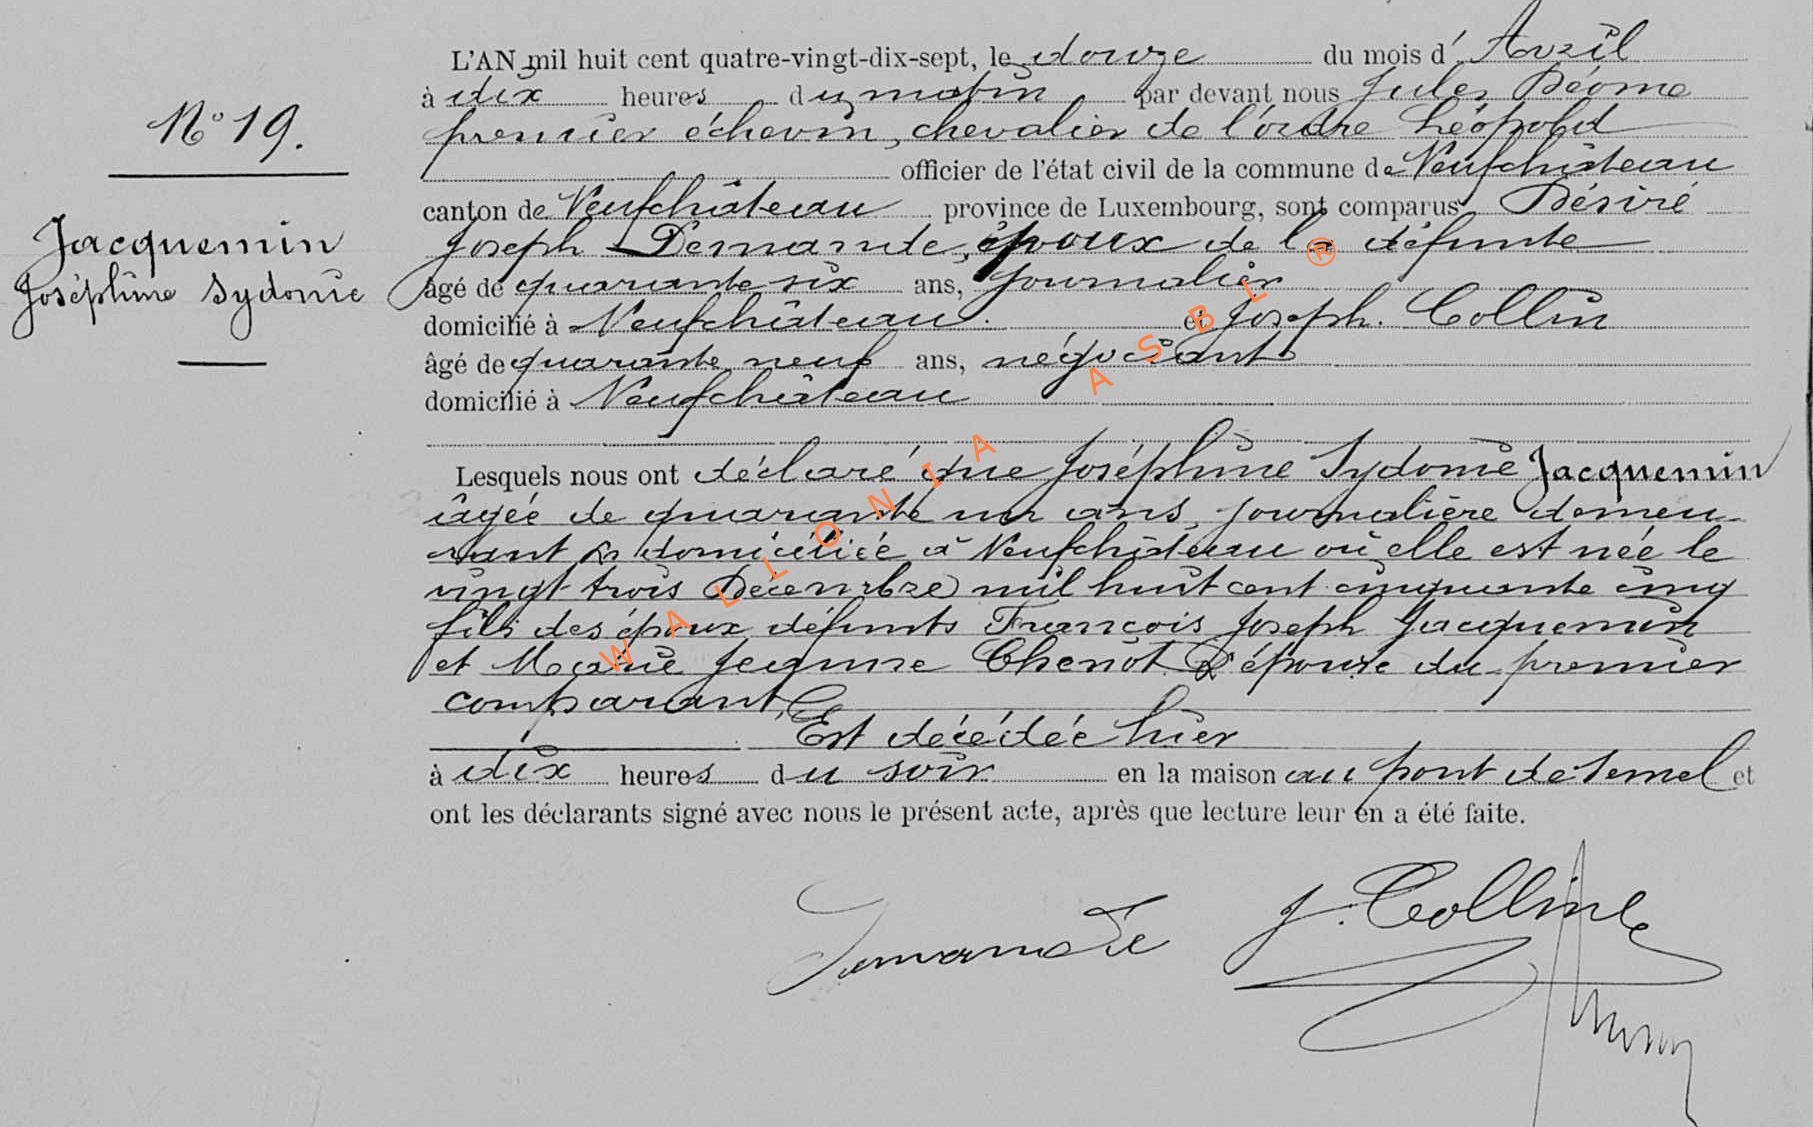 N° 19.
Jacquemin
Joséphine Sydonie
L'AN mil huit cent quatre-vingt-dix-sept, le douze du mois d' Avril
à dix heures du matin par devant nous Jules Déome
premier échevin, chevalier de l'ordre Léopold
officier de l'état civil de la commune de Neufchâteau
canton de Neufchâteau province de Luxembourg, sont comparus Désiré
Joseph Demande, époux de la défunte
âgé de quarante six ans, journalier
domicilié à Neufchâteau. et Joseph Collin
âgé de quarante neuf ans, négociant
domicilié à Neufchâteau
Lesquels nous ont déclaré que Joséphine Sydonie Jacquemin
âgée de quarante un ans, journalière demeu-
rant & domiciliée à Neufchâteau où elle est née le
vingt trois Décembre mil huit cent cinquante cinq
fils des époux défunts François Joseph Jacquemin
et Marie Jeanne Thenot & épouse du premier
comparant,
Est décédée hier
à dix heures du soir en la maison au pont de Semel et
ont les déclarants signé avec nous le présent acte, après que lecture leur en a été faite.
J. Collin
WALLONIA ASBL ®